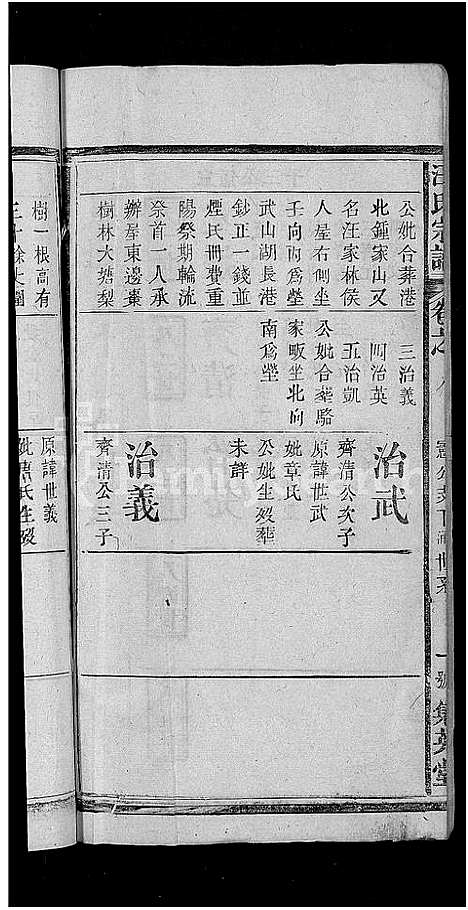 汪氏宗譜
卷之八
一號
集英堂
公妣合葬港
北鍾家山又
名汪家林侯
人屋右側坐
壬向丙為塋
武山湖長港
鈔正一錢並
煙民冊費重
陽祭期輪流
祭首一人承
辦屋東邊棗
樹林大塘梨
三治義
四治英
五治凱
公妣合葬駱
家畈坐北向
南為塋
治武
齊清公次子
原諱世武
妣章氏
公妣生歿葬
未詳
治義
齊清公三子
原諱世義
妣萬氏生歿
樹一根高有
三十餘丈圍